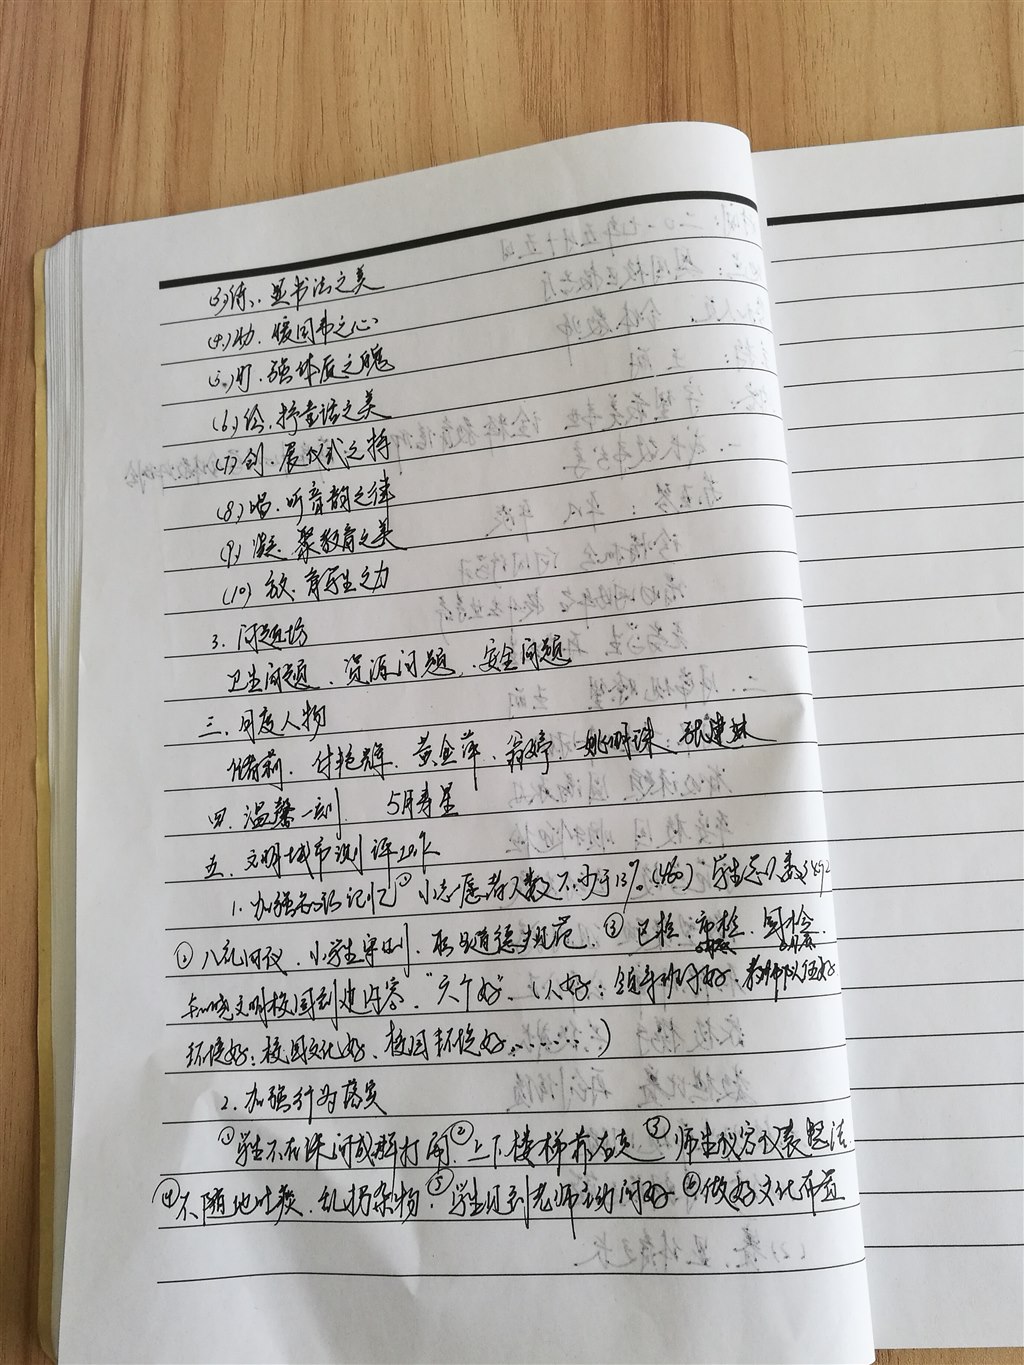 (3)练、显书法之美
(4)助、暖图书之心
(5)灯、强体质之魄
(6)绘、抒童话之美
(7)创、展仪式之持
(8)唱、听音韵之律
(9)凝、聚教育之美
(10)放、育学生之力
3、问题场
卫生问题、资源问题、安全问题
三、月度人物
储莉、付艳辉、黄金萍、翁婷、姚明珠、张建林
四、温馨一刻 5月寿星
五、文明城市测评
1、加强知识记忆 ① 小志愿者人数不少于13%(480) 学生总人数3492
② 八礼四仪、小学生守则、 道德规范、③ 已检、市检、国检
知晓文明校园创建内容、"六个好"、(人好:领导班子好、教师队伍好
环境好:校园文化好、校园环境好、……)
2、加强行为落实
①学生不在课间成群打闹 ②上下楼梯靠右走 ③师生仪容仪表整洁
④不随地吐痰、乱扔杂物、⑤学生见到老师主动问好 ⑥做好文化布置